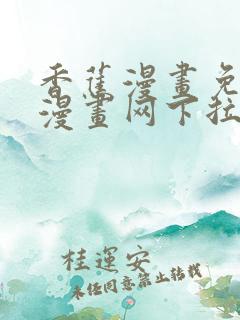 香蕉漫畫免
漫畫网下拉
桂運安
未经同意禁止转载